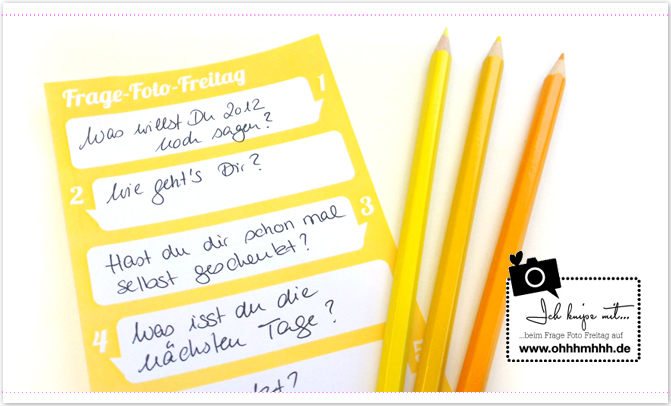 Frage-Foto-Freitag
1
Was willst Du 2012
noch sagen?
2
Wie geht's Dir?
3
Hast du dir schon mal
selbst geschenkt?
4
Was isst du die
nächsten Tage?
5
Ich knipse mit...
...beim Frage Foto Freitag auf
www.ohhhmhhh.de